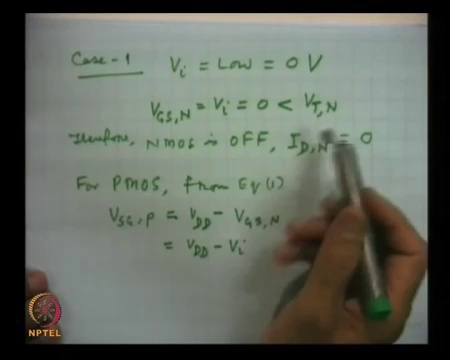 Case-1 Vi = Low = 0 V
VGS,N = Vi = 0 < VT,N
Therefore, NMOS is OFF, ID,N = 0
For PMOS, from Eq (1)
VSG,P = VDD - VGS,N
= VDD - Vi
NPTEL